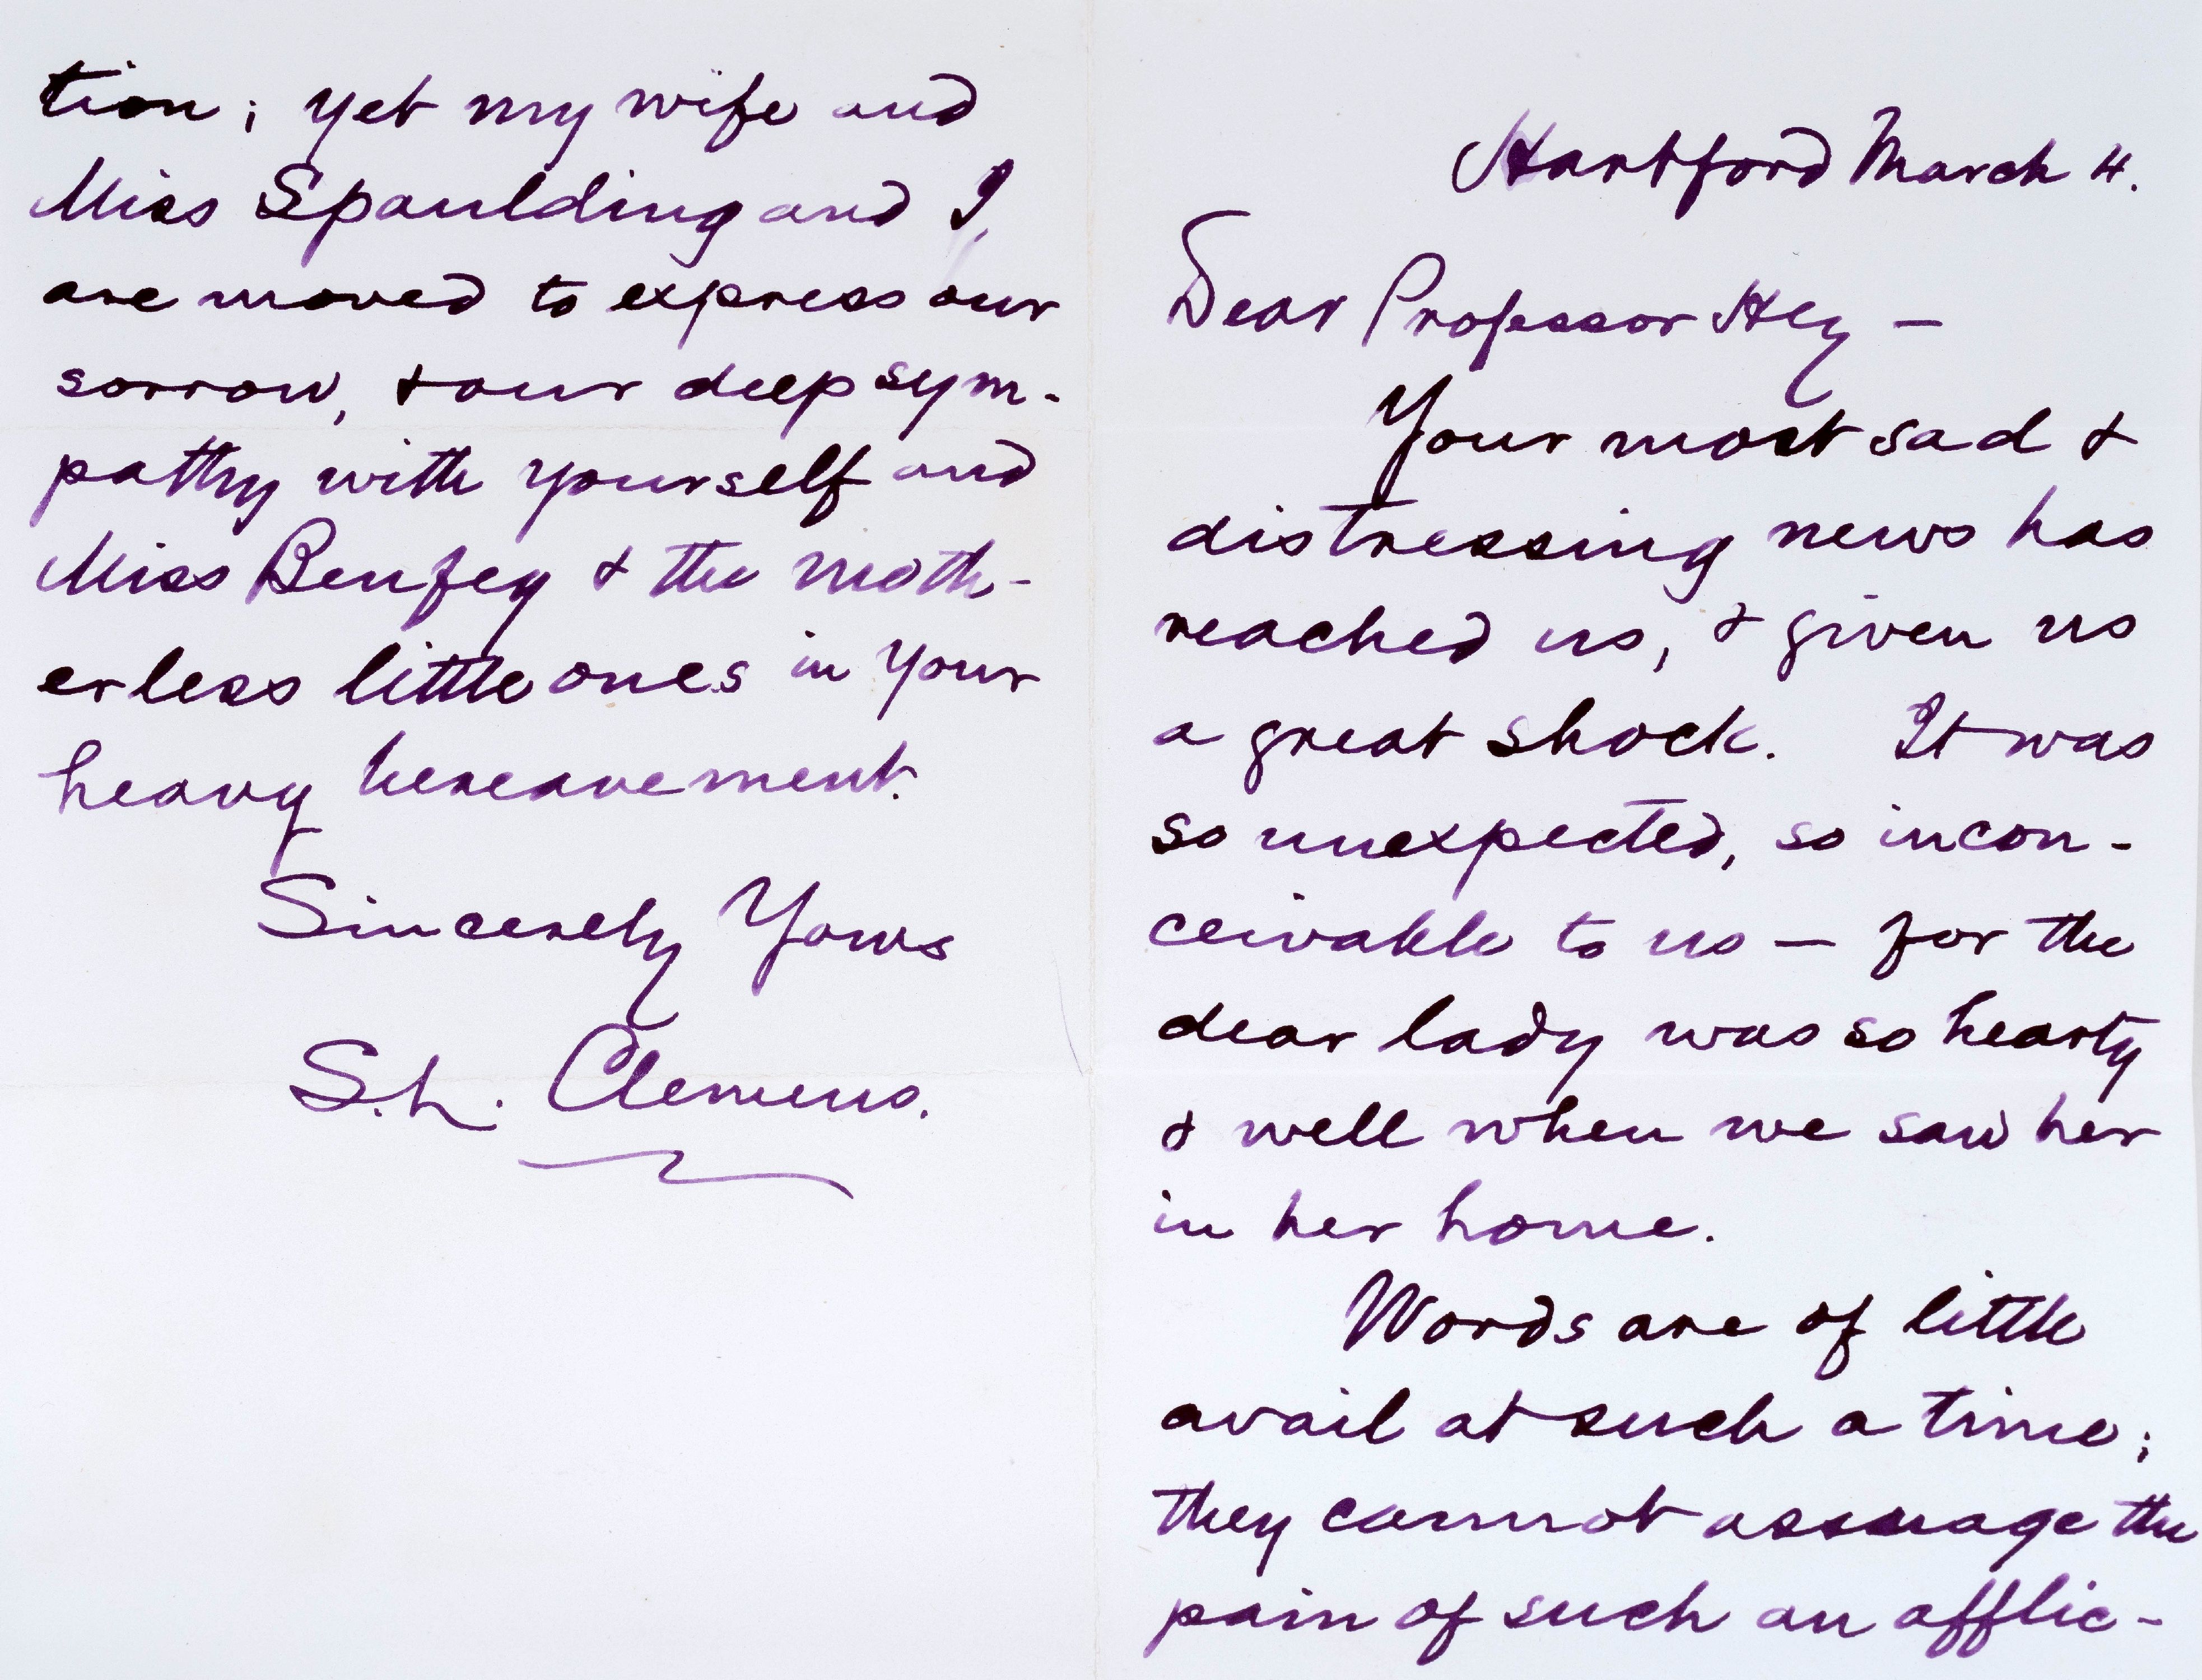 Hartford March 4.
Dear Professor Hey —
Your most sad &
distressing news has
reached us, & given us
a great shock. It was
so unexpected, so incon-
ceivable to us — for the
dear lady was so hearty
& well when we saw her
in her home.
Words are of little
avail at such a time;
they cannot assuage the
pain of such an afflic-
tion; yet my wife and
Miss Spaulding and I,
are moved to express our
sorrow, & our deep sym-
pathy with yourself and
Miss Benfey & the moth-
erless little ones in your
heavy bereavement.
Sincerely Yours
S. L. Clemens.